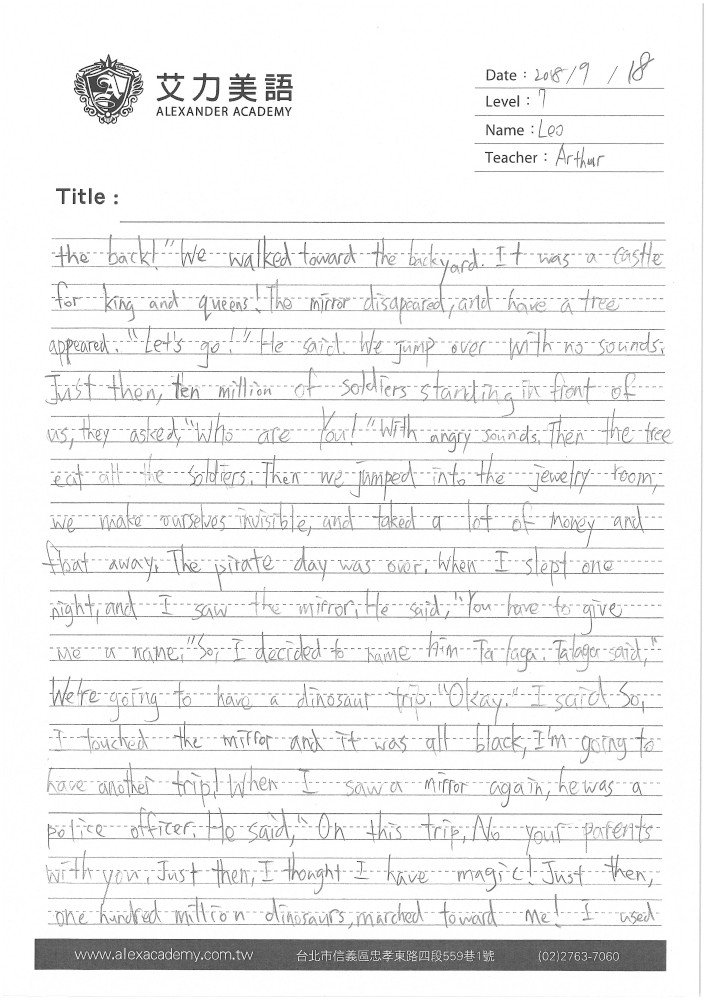 艾力美語
ALEXANDER ACADEMY
Date : 2018/9 / 18
Level : 7
Name : Leo
Teacher : Arthur
Title :
the back!" We walked toward the backyard. It was a castle
for king and queens! The mirror disapeared, and have a tree
appeared. "Let's go!" He said. We jump over with no sounds.
Just then, ten million of soldiers standing in front of
us, they asked, "Who are You!" With angry sounds. Then the tree
eat all the soldiers. Then we jumped into the jewelry room,
we make ourselves invisible, and taked a lot of money and
float away. The pirate day was over. When I slept one
night, and I saw the mirror. He said, "You have to give
me a name." So, I decided to name him Ta laga. Talaga said, "
We're going to have a dinosaur trip. "Okay." I said So,
I touched the mirror and it was all black, I'm going to
have another trip! When I saw a mirror again, he was a
police officer. He said, "On this trip, No your parents
with you. Just then, I thought I have magic! Just then,
one hundred million dinosaurs, marched toward me! I used
www.alexacademy.com.tw 台北市信義區忠孝東路四段559巷1號 (02)2763-7060